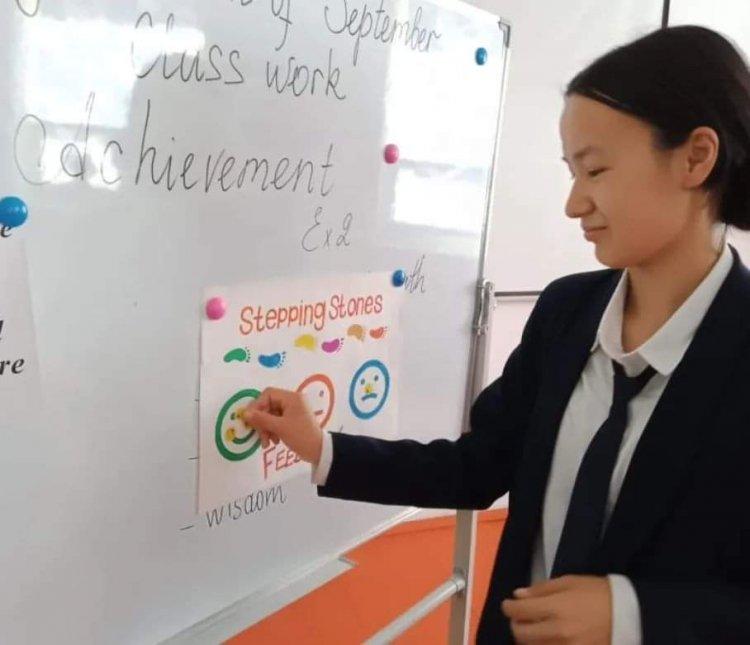 of September
Class work
Achievement
Ex 2
Stepping Stones
wisdom
re